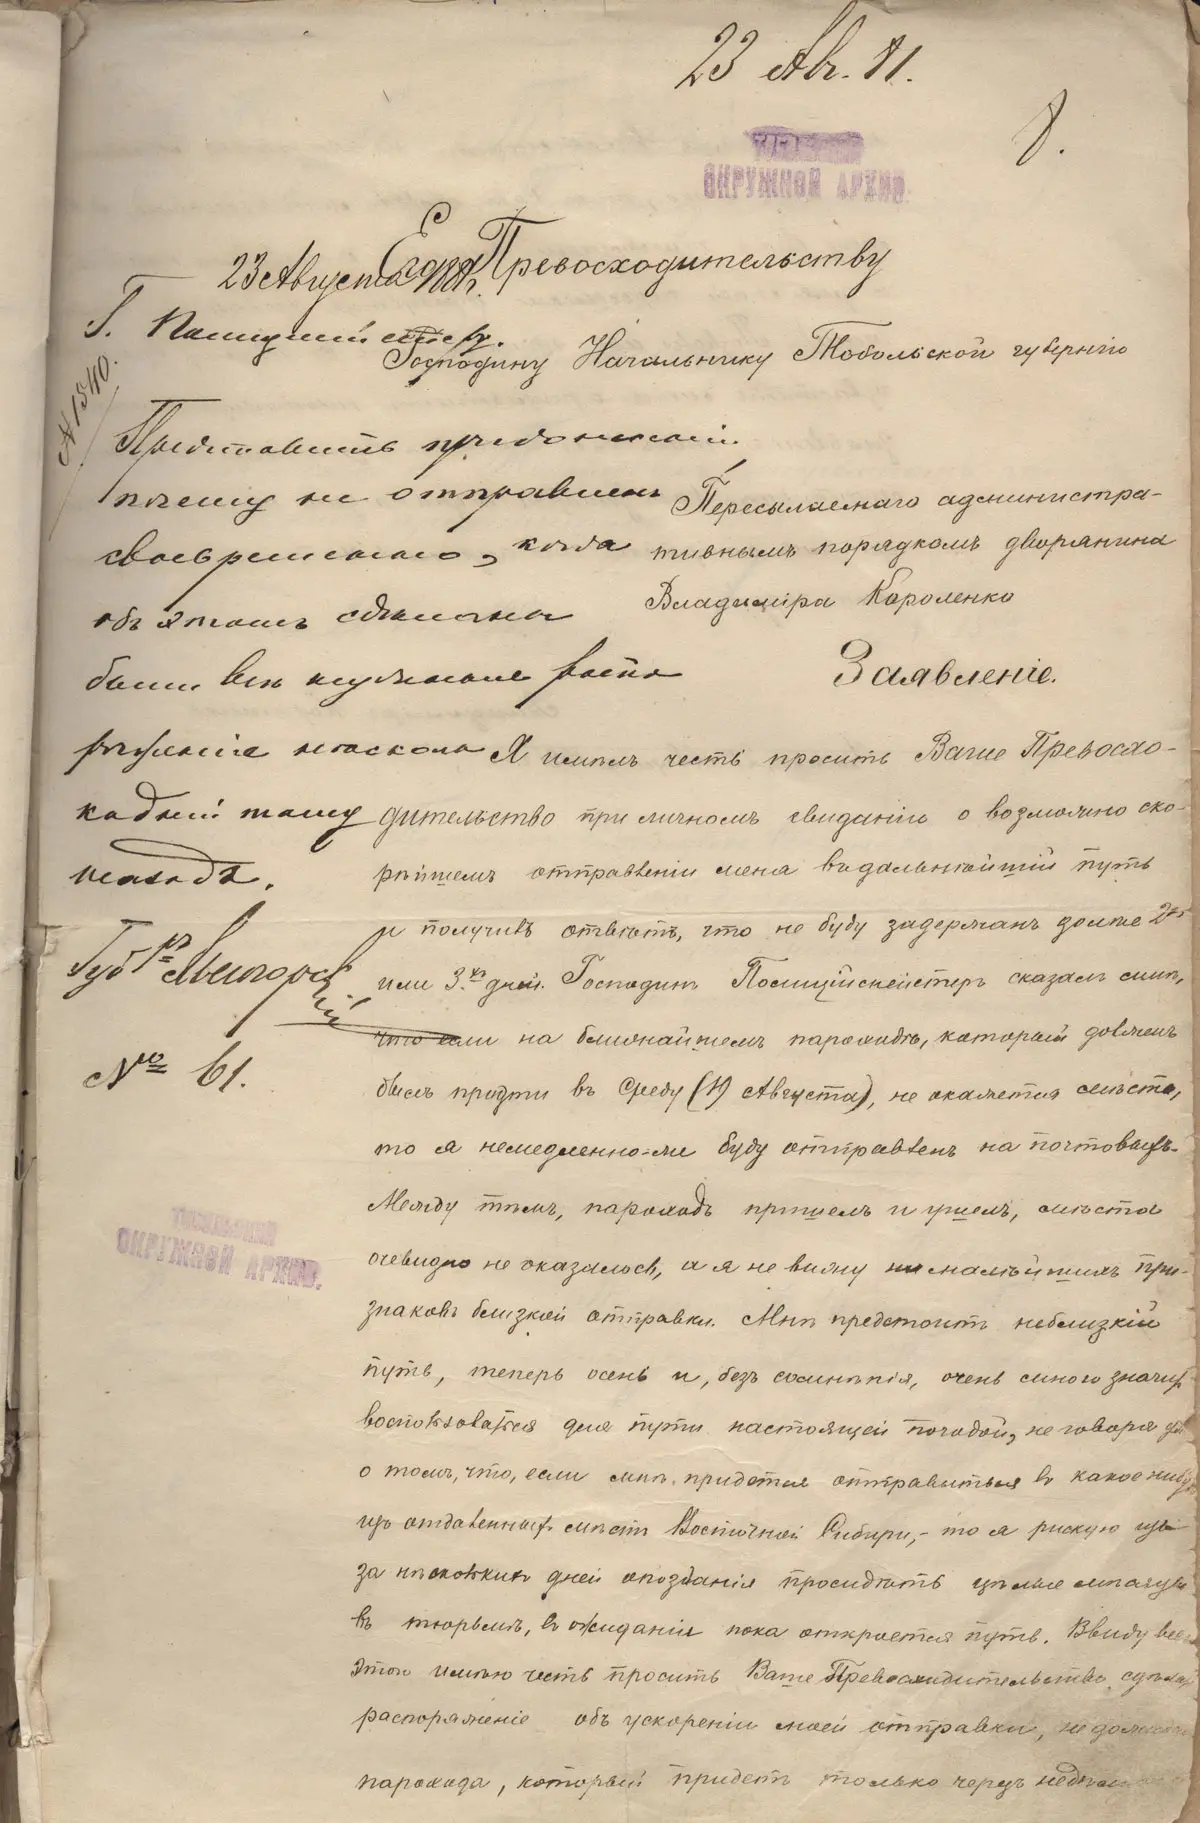 23 Авг. 81.
8.
ОКРУЖНОЙ АРХИВ.
Его Превосходительству
23 Августа 1881 г.
Г. Полицiймейстеру.
Господину Начальнику Тобольской губернiи
№ 1540.
почему не отправленъ
своевременно, когда
объ этомъ сдѣланы
были
Губ
№ 61.
Пересылаемаго администра-
тивнымъ порядкомъ дворянина
Владимiра Короленко
Заявленiе.
Я имѣлъ честь просить Ваше Превосхо-
дительство при личномъ свиданiи о возможно ско-
рѣйшемъ отправленiи меня въ дальнѣйшiй путь
и получивъ отвѣтъ, что не буду задержанъ долѣе 2хъ
или 3.хъ дней. Господинъ Полицiймейстеръ сказалъ мнѣ,
что если на ближайшемъ пароходѣ, который долженъ
былъ придти въ Среду (19 Августа), не окажется мѣста,
то я немедленно-же буду отправленъ на почтовыхъ.
Между тѣмъ, пароходъ пришелъ и ушелъ, мѣста
очевидно не оказалось, а я не вижу ни малѣйшихъ при-
знаковъ близкой отправки. Мнѣ предстоитъ неблизкiй
путь, теперь осень и, безъ сомнѣнiя, очень много значитъ
воспользоваться для пути настоящей погодой, не говоря ужъ
о томъ, что, если мнѣ придется отправиться въ какое нибудь
изъ отдаленныхъ мѣстъ Восточной Сибири, - то я рискую изъ
за нѣсколькихъ дней опозданiя просидѣть цѣлые мѣсяцы
въ тюрьмѣ, въ ожиданiи пока откроется путь. Ввиду всего
этого имѣю честь просить Ваше Превосходительство сдѣлать
распоряженiе объ ускоренiи моей отправки, не дожидаясь
парохода, который придетъ только черезъ недѣлю
ОКРУЖНОЙ АРХИВ.